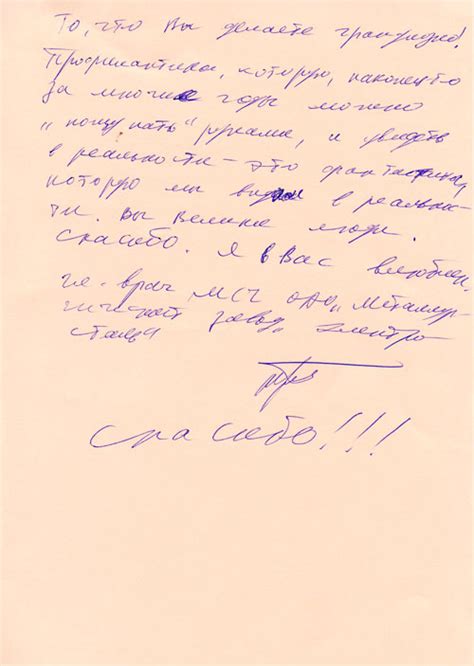 То, что Вы делаете грандиозно!
Профилактика, которую, наконец-то
за многие годы можно
„пощупать" руками, и увидеть
в реальности – это фантастика,
которую мы видим в реальнос-
ти. Вы великие люди.
Спасибо. Я в Вас влюблен.
гл. врач МСЧ ОАО „Металлур-
гический завод „Электро
сталь"
Спасибо!!!